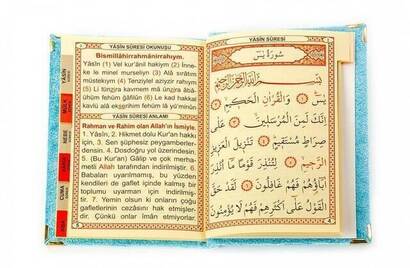 YÂSÎN SÛRESİ OKUNUŞU
Bismillâhirrahmânirrahıym.
(1) Yâsîn (1) Vel kur'ânil hakiym (2) İnne-
ke le minel murseliyn (3) Alâ sırâtım
müstekiym (4) Tenziylel aziyzir rahiym
(5) Li tünzira kavmem mâ ünzira âbâ-
ühüm fehüm ğâfilûn (6) Le kad hakkal
kavlü alâ ekserihim fehüm lâ yü'minûn
YÂSÎN SÛRESİ ANLAMI
Rahman ve Rahim olan Allah'ın İsmiyle.
1. Yâsîn, 2. Hikmet dolu Kur'an hakkı
için, 3. Sen şüphesiz peygamberler-
densin. 4. Dosdoğru yol üzerindesin.
5. (Bu Kur'an) Gâlip ve çok merha-
metli Allah tarafından indirilmiştir. 6.
Babaları uyarılmamış, bu yüzden
kendileri de gaflet içinde kalmış bir
toplumu uyarman için indirilmiş-
tir. 7. Yemin olsun ki onların çoğu
gafletlerinin cezasını hak etmişler-
dir. Çünkü onlar îmân etmiyorlar.
YÂSİN
MÜLK
NEBE
CUMA
YÂSÎN SÛRESİ
سُورَةُ يٰسٓ
بِسْمِ اللّٰهِ الرَّحْمٰنِ الرَّحِيمِ
يٰسٓ ﴿١﴾ وَالْقُرْاٰنِ الْحَكِيمِ ﴿٢﴾
اِنَّكَ لَمِنَ الْمُرْسَلِينَ ﴿٣﴾ عَلٰى
صِرَاطٍ مُسْتَقِيمٍ ﴿٤﴾ تَنْزِيلَ الْعَزِيزِ
الرَّحِيمِ ﴿٥﴾ لِتُنْذِرَ قَوْمًا مَٓا اُنْذِرَ
اٰبَٓاؤُهُمْ فَهُمْ غَافِلُونَ ﴿٦﴾ لَقَدْ حَقَّ
الْقَوْلُ عَلٰٓى اَكْثَرِهِمْ فَهُمْ لَا يُؤْمِنُونَ